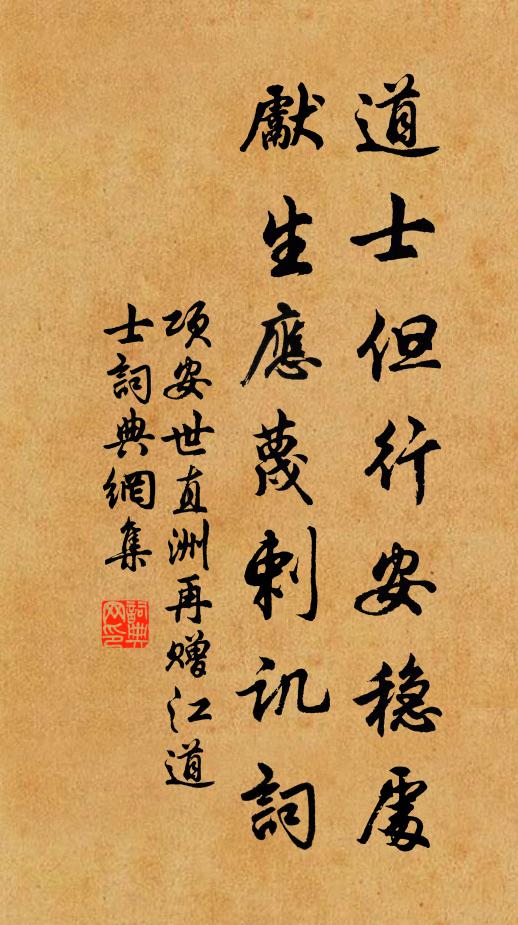 道士但行安稳處
獻生應蔑刺讥詞
项安世直洲再赠江道
士詞典網集
詞典网印